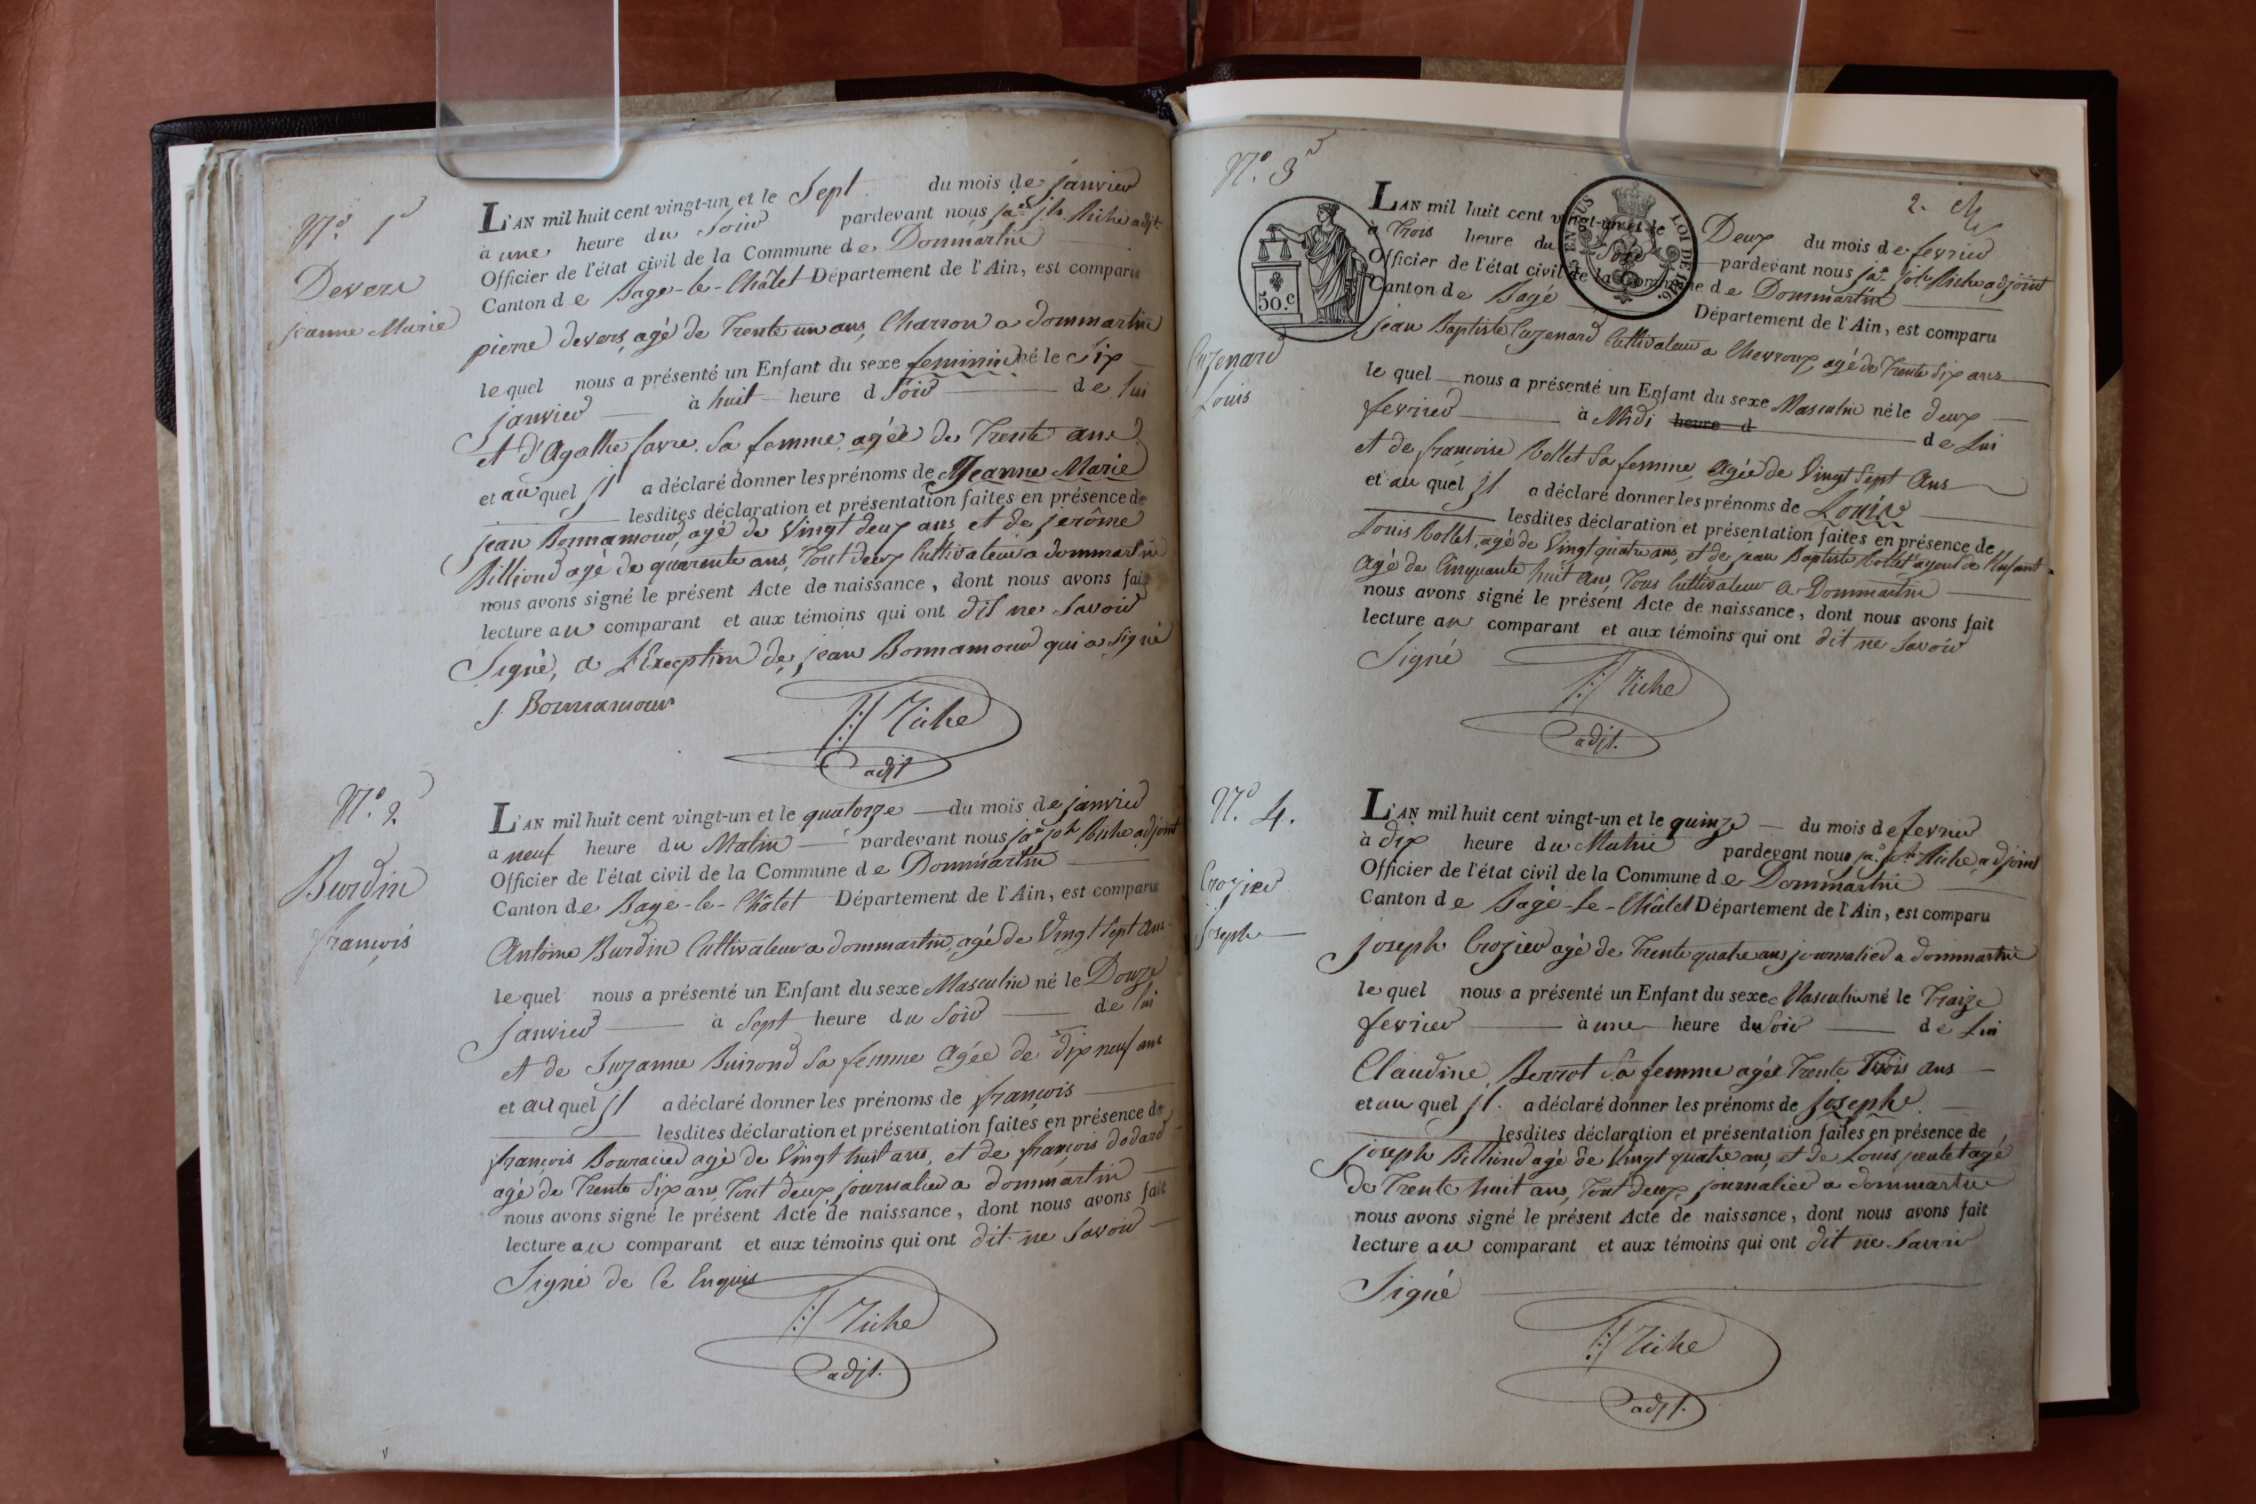 N.o 1
Devers
jeanne Marie
L'AN mil huit cent vingt-un et le Sept du mois de janvier
à une heure du Soir pardevant nous ja.n j.h Riche adjt
Officier de l'état civil de la Commune de Dommartin
Canton de Bagé-le-Châtel Département de l'Ain, est comparu
pierre devers, agé de Trente un ans, Charron a dommartin
le quel nous a présenté un Enfant du sexe feminin né le Six
janvier à huit heure d Soir de lui
et d'Agathe favre Sa femme agée de Trente ans
et au quel jl a déclaré donner les prénoms de Jeanne Marie
lesdites déclaration et présentation faites en présence de
jean Bonnamour, agé de Vingt deux ans et de jerôme
Billioud agé de quarente ans, Tout deux Cultivateur a dommartin
nous avons signé le présent Acte de naissance, dont nous avons fait
lecture au comparant et aux témoins qui ont dit ne Savoir
Signé, a L'Exception de jean Bonnamour qui a Signé
j Bonnamour
Riche
adjt
N.o 2
Burdin
françois
L'AN mil huit cent vingt-un et le quatorze du mois de janvier
à neuf heure du Matin pardevant nous ja.n jph Riche adjoint
Officier de l'état civil de la Commune de Dommartin
Canton de Bagé-le-Châtel Département de l'Ain, est comparu
Antoine Burdin Cultivateur a dommartin, agé de Vingt Sept ans
le quel nous a présenté un Enfant du sexe Masculin né le Douze
janvier à Sept heure du Soir de lui
et de Suzanne Buirond Sa femme Agée de dix neuf ans
et au quel jl a déclaré donner les prénoms de françois
lesdites déclaration et présentation faites en présence de
françois Bouracier agé de Vingt huit ans, et de françois dodard
agé de Trente Six ans, Tout deux journalier a dommartin
nous avons signé le présent Acte de naissance, dont nous avons fait
lecture au comparant et aux témoins qui ont dit ne Savoir
Signé de Ce Enquis
Riche
adjt.
N.o 3
2.
50.c
LOI DE 1816.
Cuzenard
Louis
L'AN mil huit cent vingt-un et le Deux du mois de fevrier
à Trois heure du Soir pardevant nous ja.n jph Riche adjoint
Officier de l'état civil de la Commune de Dommartin
Canton de Bagé Département de l'Ain, est comparu
jean Baptiste Cuzenard Cultivateur a Chevroux, agé de Trente Six ans
le quel nous a présenté un Enfant du sexe Masculin né le deux
fevrier à Midi heure d de Lui
et de françoise Rollet Sa femme, Agée de Vingt Sept Ans
et au quel jl a déclaré donner les prénoms de Louis
lesdites déclaration et présentation faites en présence de
Louis Rollet, agé de Vingt quatre ans, et de jean Baptiste Rollet ayeul de l'Enfant
Agé de Cinquante huit Ans, Tous Cultivateur A Dommartin
nous avons signé le présent Acte de naissance, dont nous avons fait
lecture au comparant et aux témoins qui ont dit ne Savoir
Signé
Riche
adjt.
N.o 4.
Crozier
Joseph
L'AN mil huit cent vingt-un et le quinze du mois de fevrier
à dix heure du Matin pardevant nous ja.n jph Riche, adjoint
Officier de l'état civil de la Commune de Dommartin
Canton de Bagé-le-Châtel Département de l'Ain, est comparu
Joseph Crozier agé de Trente quatre ans journalier a dommartin
le quel nous a présenté un Enfant du sexe Masculin né le Traize
fevrier à une heure du Soir de Lui
Claudine Berrot Sa femme agée Trente Trois ans
et au quel jl. a déclaré donner les prénoms de joseph
lesdites déclaration et présentation faites en présence de
joseph Billioud agé de Vingt quatre ans, et de Louis pentet agé
de Trente huit ans, Tout deux, journalier a dommartin
nous avons signé le présent Acte de naissance, dont nous avons fait
lecture au comparant et aux témoins qui ont dit ne Savoir
Signé
Riche
adjt.